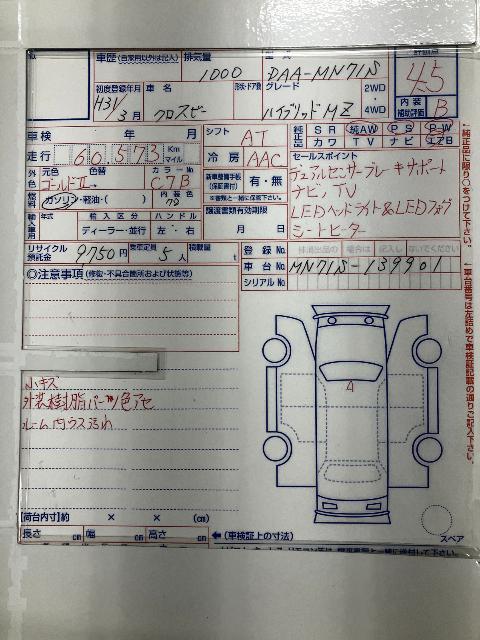 車歴 (自家用以外は記入) 排気量 型式 評価点
1000 DAA-MN71S 4.5
初度登録年月 車名 形状・ドア数 グレード 2WD 4WD 内装補助評価
H31/3月 クロスビー ハイブリッドMZ B
車検 年 月 シフト AT 純正品 SR 純AW PS PW
カワ TV ナビ エアB
走行 60,573 Km マイル 冷房 AAC セールスポイント
デュアルセンサーブレーキサポート
ナビ、TV
LEDヘッドライト&LEDフォグ
シートヒーター
外色 元色 色替 カラーNo
ゴールドII→ C7B
新車整備手帳(保証書付) 有・無
燃料 ガソリン・軽油・( ) 内装色
輸入車用 モデル年式 輸入区分 ハンドル 譲渡書類有効期限
年 ディーラー・並行 左・右 月 日
リサイクル預託金 9750円 乗車定員 5人 積載量 t 登録No
車台No MN71S-139901
シリアルNo
◎注意事項 (修復・不具合箇所および状態等)
小キズ
外装樹脂パーツ色アセ
ルーム内ウス汚れ
4
【荷台内寸】約 × × (cm)
長さ cm 幅 cm 高さ cm ←(車検証上の寸法)
スペア
←純正品に限り○をつけて下さい。
←車台番号は左詰めで車検証記載の通りご記入下さい。